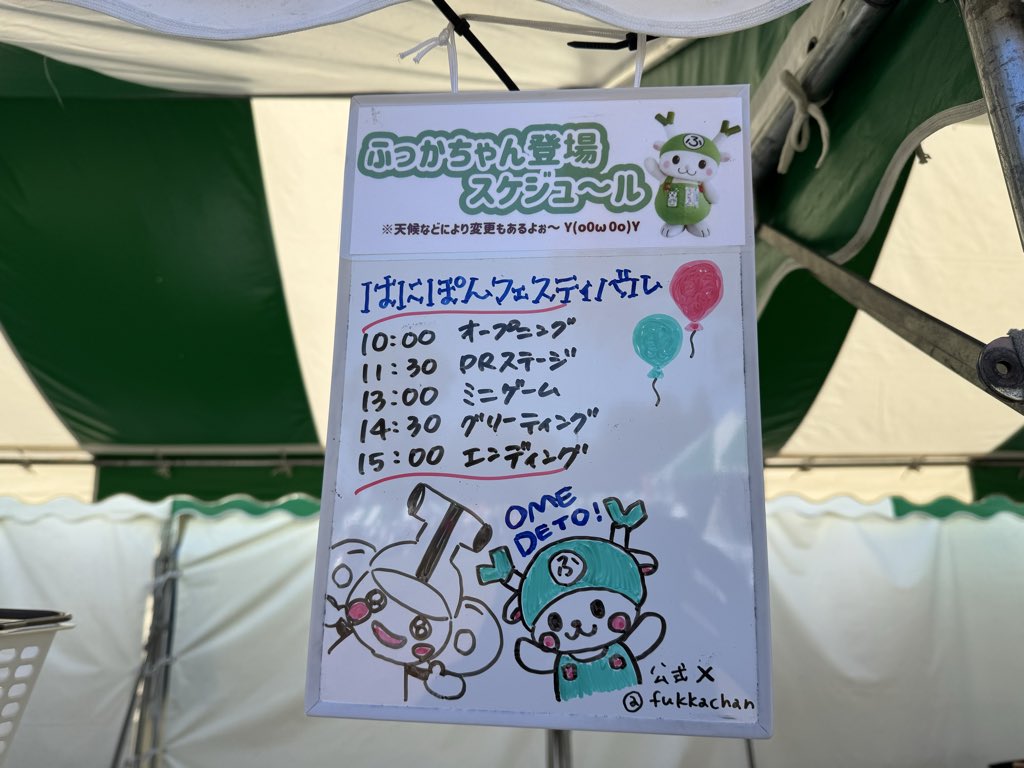 ふっかちゃん登場
スケジュ〜ル
※天候などにより変更もあるよぉ〜 Y(o0ω0o)Y
はにぽんフェスティバル
10:00 オープニング
11:30 PRステージ
13:00 ミニゲーム
14:30 グリーティング
15:00 エンディング
OME
DETO!
ふ
公式 X
@fukkachan